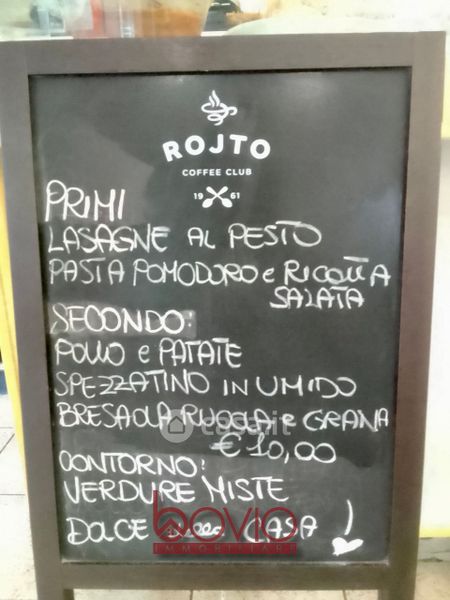 ROJTO
COFFEE CLUB
19 61
PRIMI
LASAGNE AL PESTO
PASTA POMODORO e RICOTTA
SALATA
SECONDO:
POLLO e PATATE
SPEZZATINO IN UMIDO
BRESAOLA RUCOLA e GRANA
casa.it
€ 10,00
CONTORNO:
VERDURE MISTE
bovio
DOLCE CASA !
IMMOBILIARE